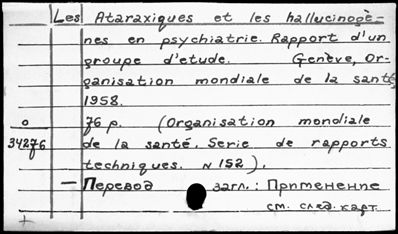 Les Ataraxiques et les hallucinogè-
nes en psychiatrie. Rapport d'un
groupe d'etude. Genève, Or-
ganisation mondiale de la santé
1958.
o 76 p. (Organisation mondiale
34276 de la santé. Serie de rapports
techniques. N 152).
— Перевод загл.: Применение
см. след. карт.